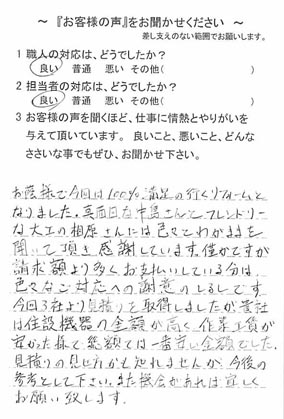 ～『お客様の声』をお聞かせください ～
差し支えのない範囲でお願いします。
1 職人の対応は、どうでしたか？
良い 普通 悪い その他( )
2 担当者の対応は、どうでしたか？
良い 普通 悪い その他( )
3 お客様の声を聞くほど、仕事に情熱とやりがいを
与えて頂いています。 良いこと、悪いこと、どんな
ささいな事でもぜひ、お聞かせ下さい。
お陰様で今回は100%満足の行くリフォームと
なりました。真面目な中島さんとフレンドリー
な大工の相原さんには色々とわがままを
聞いて頂き感謝しています。僅かですが
請求額より多くお支払いしている分は、
色々なご対応への謝意のしるしです。
今回3社より見積りを取得しましたが貴社
は住設機器の金額が高く、作業工賃が
安かった様で総額では一番安い金額でした。
見積りの見に方かも知れませんが、今後の
参考として下さい。また機会があれば宜しく
お願い致します。